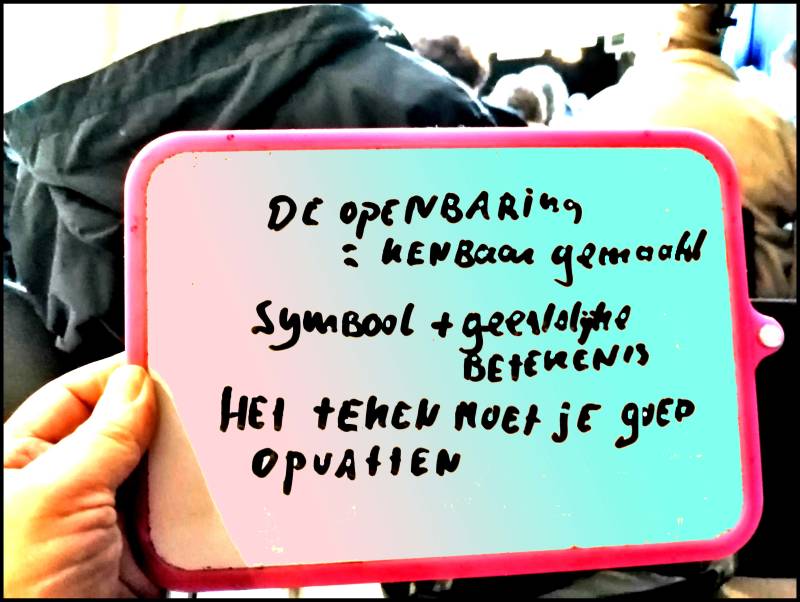 DE OPENBARing
= KENBaar gemaakt
Symbool + geestelijke
BETEKENis
HET TEKEN MOET JE GOED
OPVATTEN